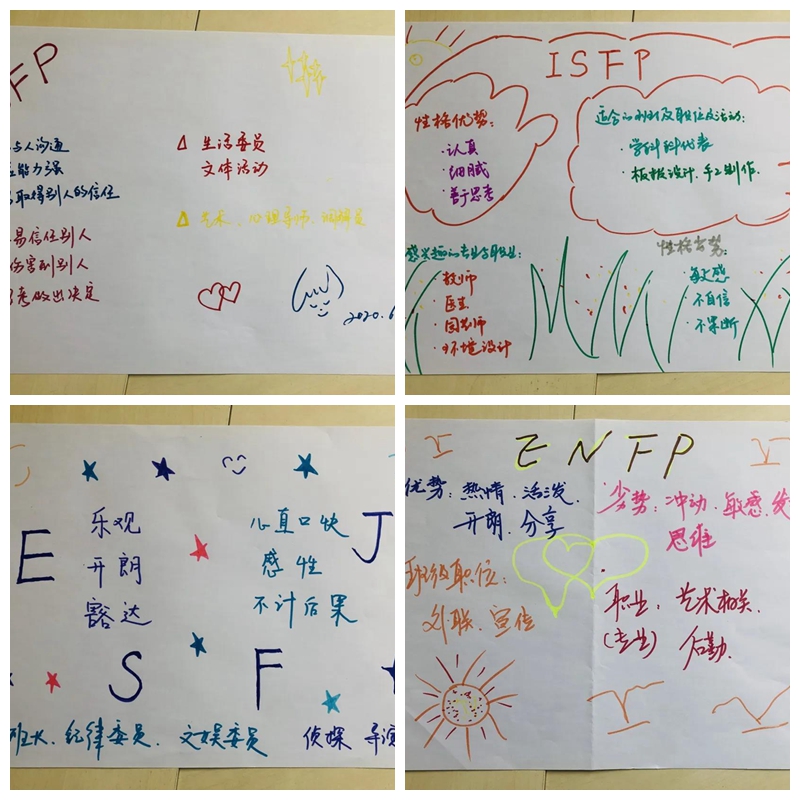 FP
与人沟通
能力强
取得别人的信任
易信任别人
伤害到别人
考做出决定
△ 生活委员
文体活动
△ 艺术、心理导师、调解员
2020.6
ISFP
性格优势:
·认真
·细腻
·善于思考
适合的班级职位及活动:
·学科科代表
·板报设计、手工制作.
感兴趣的专业与职业:
·教师
·医生
·园艺师
·环境设计
性格劣势:
·敏感
·不自信
·不果断
E
J
S
F
乐观
开朗
豁达
心直口快
感性
不计后果
班长、纪律委员、文娱委员 侦探 导演
ENFP
优势: 热情、活泼、
开朗、分享
劣势: 冲动、敏感、发
思维
班级职位:
外联、宣传
职业: 艺术相关、
(专业) 后勤.